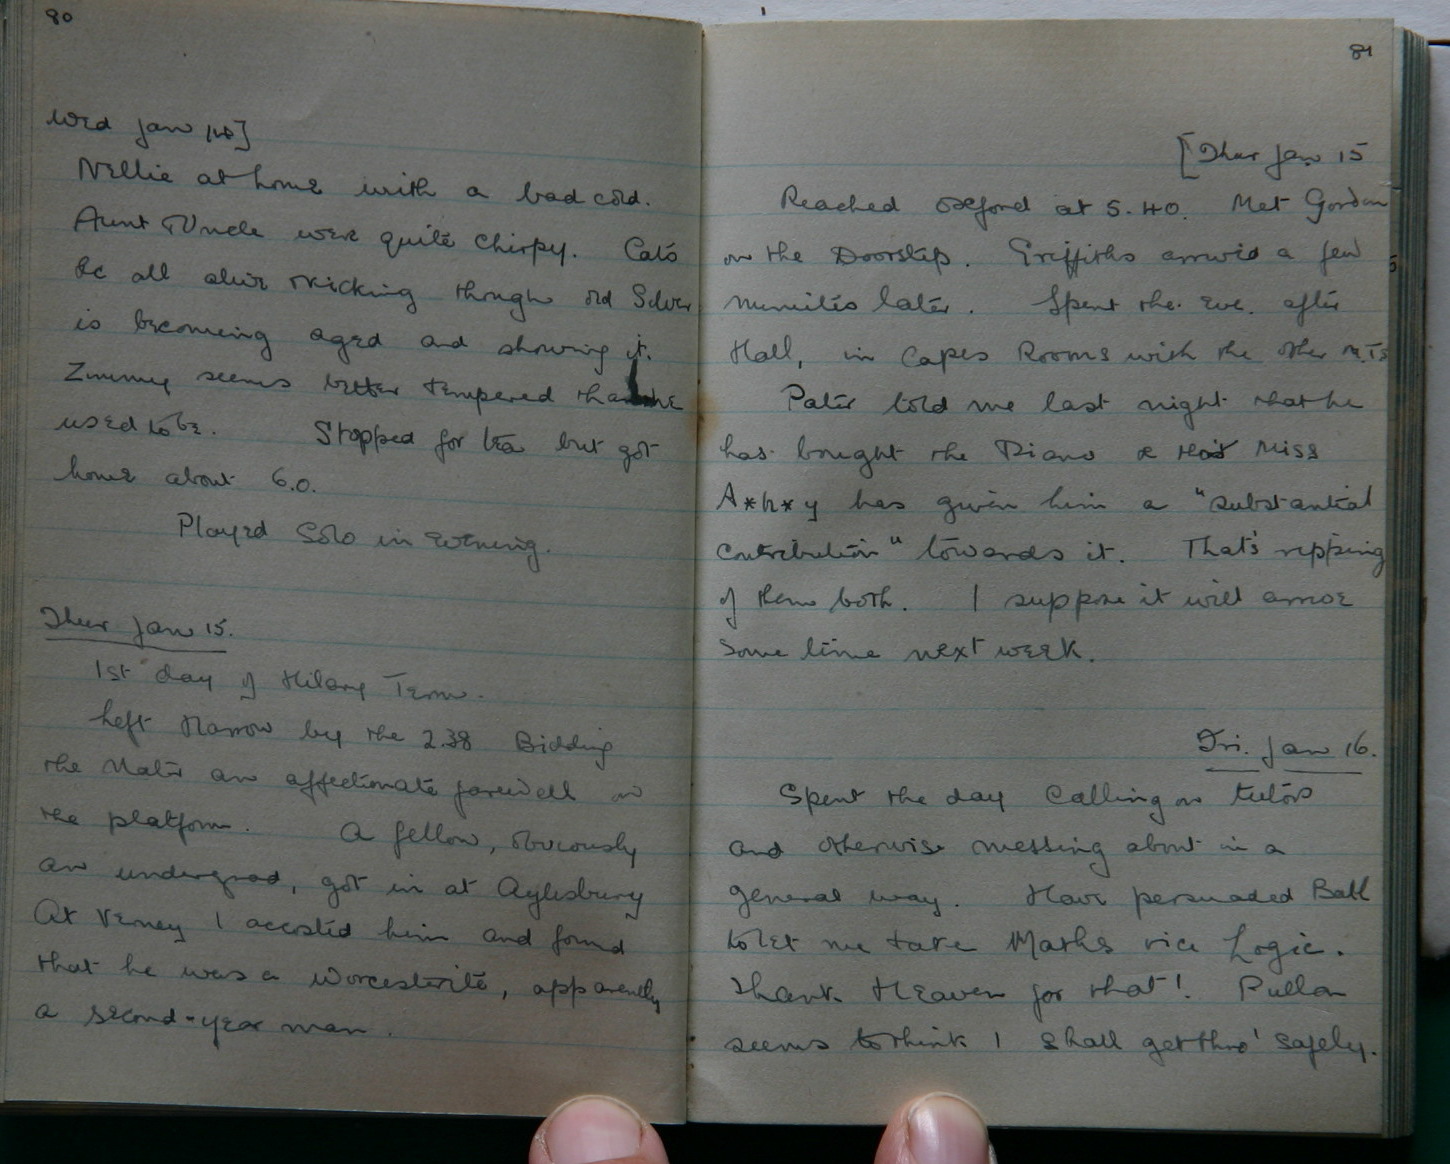 80
Wed Jan 14]
Nellie at home with a bad cold.
Aunt & Uncle were quite chirpy. Cats
&c all alive & kicking though old Silver
is becoming aged and showing it.
Zimmy seems better tempered than he
used to be. Stopped for tea but got
home about 6.0.
Played Solo in Evening.
Thur Jan 15.
1st day of Hilary Term.
Left Harrow by the 2.38 Bidding
the Mater an affectionate farewell on
the platform. A fellow, obviously
an undergrad, got in at Aylesbury
At Verney I accosted him and found
that he was a Worcesterite, apparently
a second-year man.
81
[Thur Jan 15
Reached Oxford at 5.40. Met Gordon
on the Doorstep. Griffiths arrived a few
minutes later. Spent the Eve. after
Hall, in Capes Rooms with the other M.Ts
Pater told me last night that he
has bought the Piano & that Miss
A*h*y has given him a "substantial
contribution" towards it. That's ripping
of them both. I suppose it will arrive
some time next week.
Fri. Jan 16.
Spent the day Calling on tutors
and otherwise messing about in a
general way. Have persuaded Ball
to let me take Maths vice Logic.
Thank Heaven for that! Pullan
seems to think I shall get thro' safely.